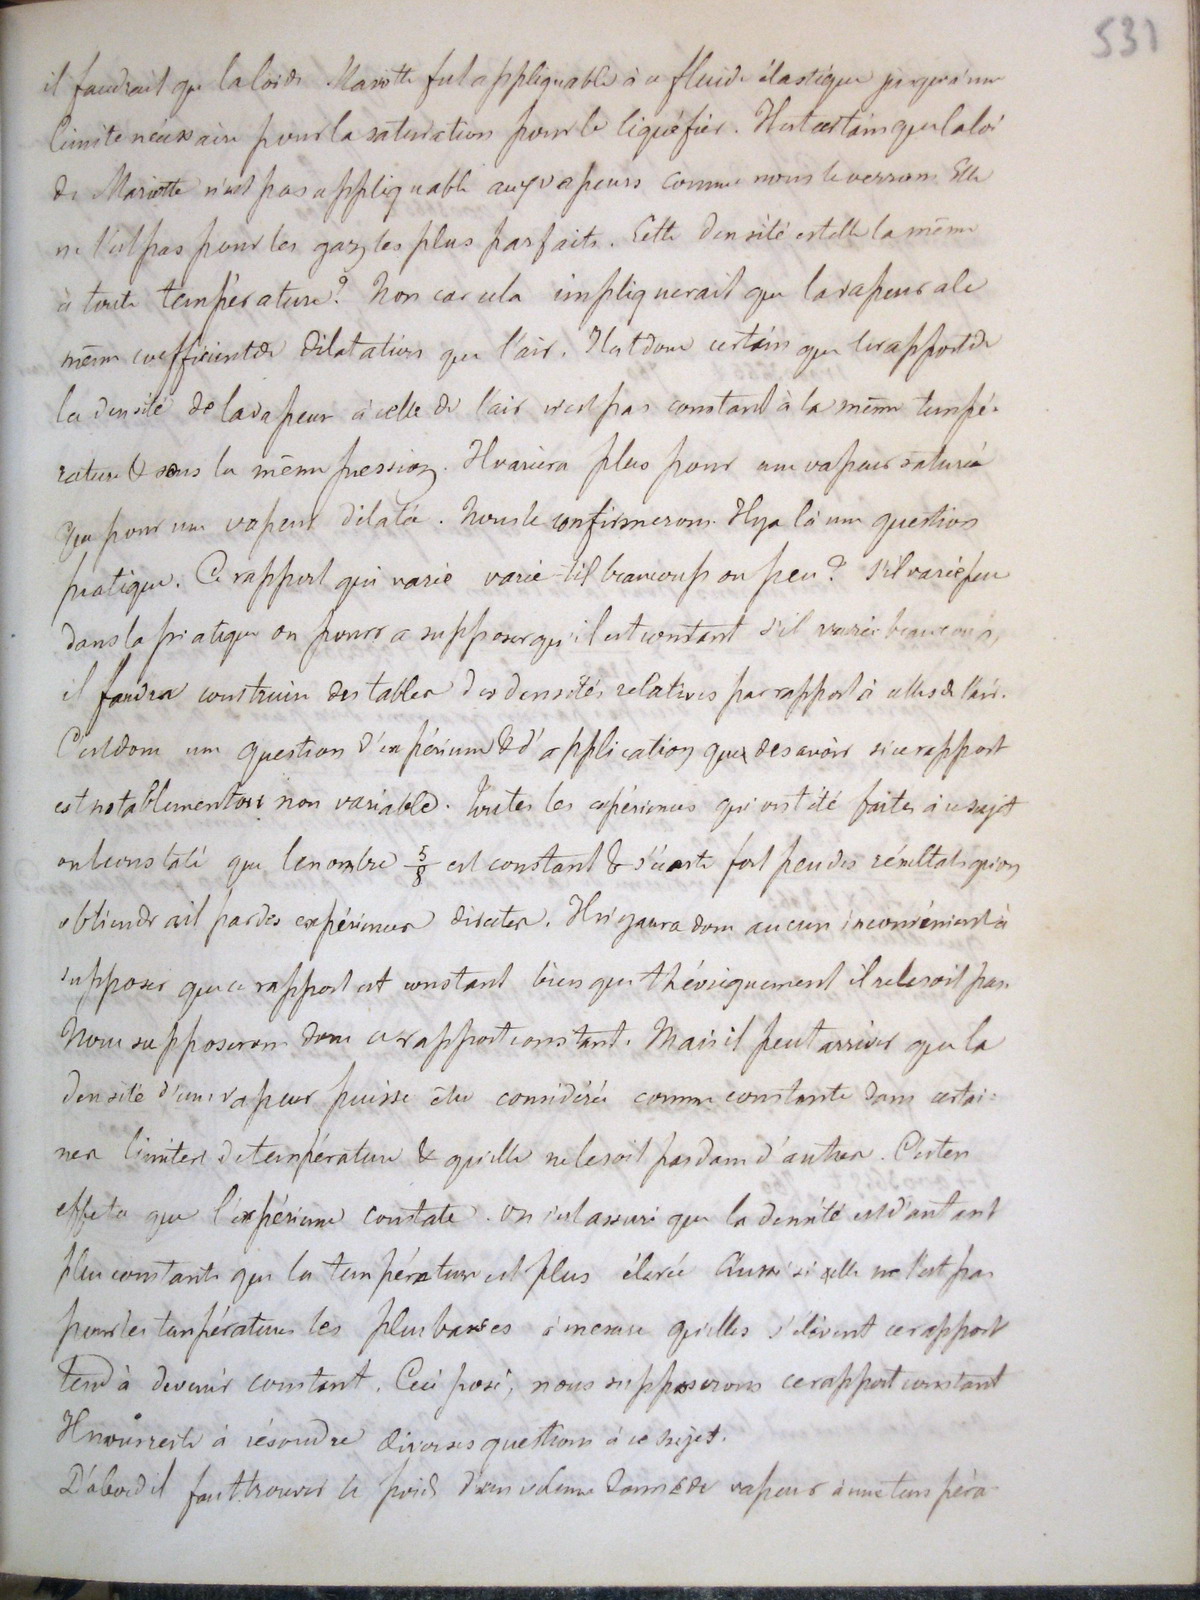 531
il faudrait que la loi de Mariotte fut appliquable à ce fluide élastique jusqu'à une
limite nécessaire pour la saturation pour le liquéfier. Il est certain que la loi
de Mariotte n'est pas appliquable aux vapeurs comme nous le verrons. Elle
ne l'est pas pour les gaz les plus parfaits. Cette densité est elle la même
à toute température? Non car cela impliquerait que la vapeur a le
même coefficient de dilatation que l'air. Il est donc certain que le rapport de
la densité de la vapeur à celle de l'air n'est pas constant à la même tempé-
rature & sous la même pression. Il variera plus pour une vapeur saturée
que pour une vapeur dilatée. Nous le confirmerons. Il y a là une question
pratique. Ce rapport qui varie varie-t-il beaucoup ou peu? S'il varie peu
dans la pratique on pourra supposer qu'il est constant s'il varie beaucoup
il faudra construire des tables des densités relatives par rapport à celles de l'air.
C'est donc une question d'expérience & d'application que de savoir si ce rapport
est notablement ou non variable. Toutes les expériences qui ont été faites à ce sujet
ont constaté que le nombre 5/8 est constant & s'écarte fort peu des résultats qu'on
obtiendrait par des expériences directes. Il n'y aura donc aucun inconvénient à
supposer que ce rapport est constant bien que théoriquement il ne le soit pas.
Nous supposerons donc ce rapport constant. Mais il peut arriver que la
densité d'une vapeur puisse être considérée comme constante dans certai-
nes limites de température & qu'elle ne le soit pas dans d'autres. C'est en
effet ce que l'expérience constate. on s'est assuré que la densité est d'autant
plus constante que la température est plus élevée Aussi si elle ne l'est pas
pour les températures les plus basses à mesure qu'elles s'élèvent ce rapport
tend à devenir constant. Ceci posé, nous supposerons ce rapport constant
Il nous reste à résoudre diverses questions à ce sujet.
D'abord il faut trouver le poids d'un volume donné de vapeur à une tempéra-